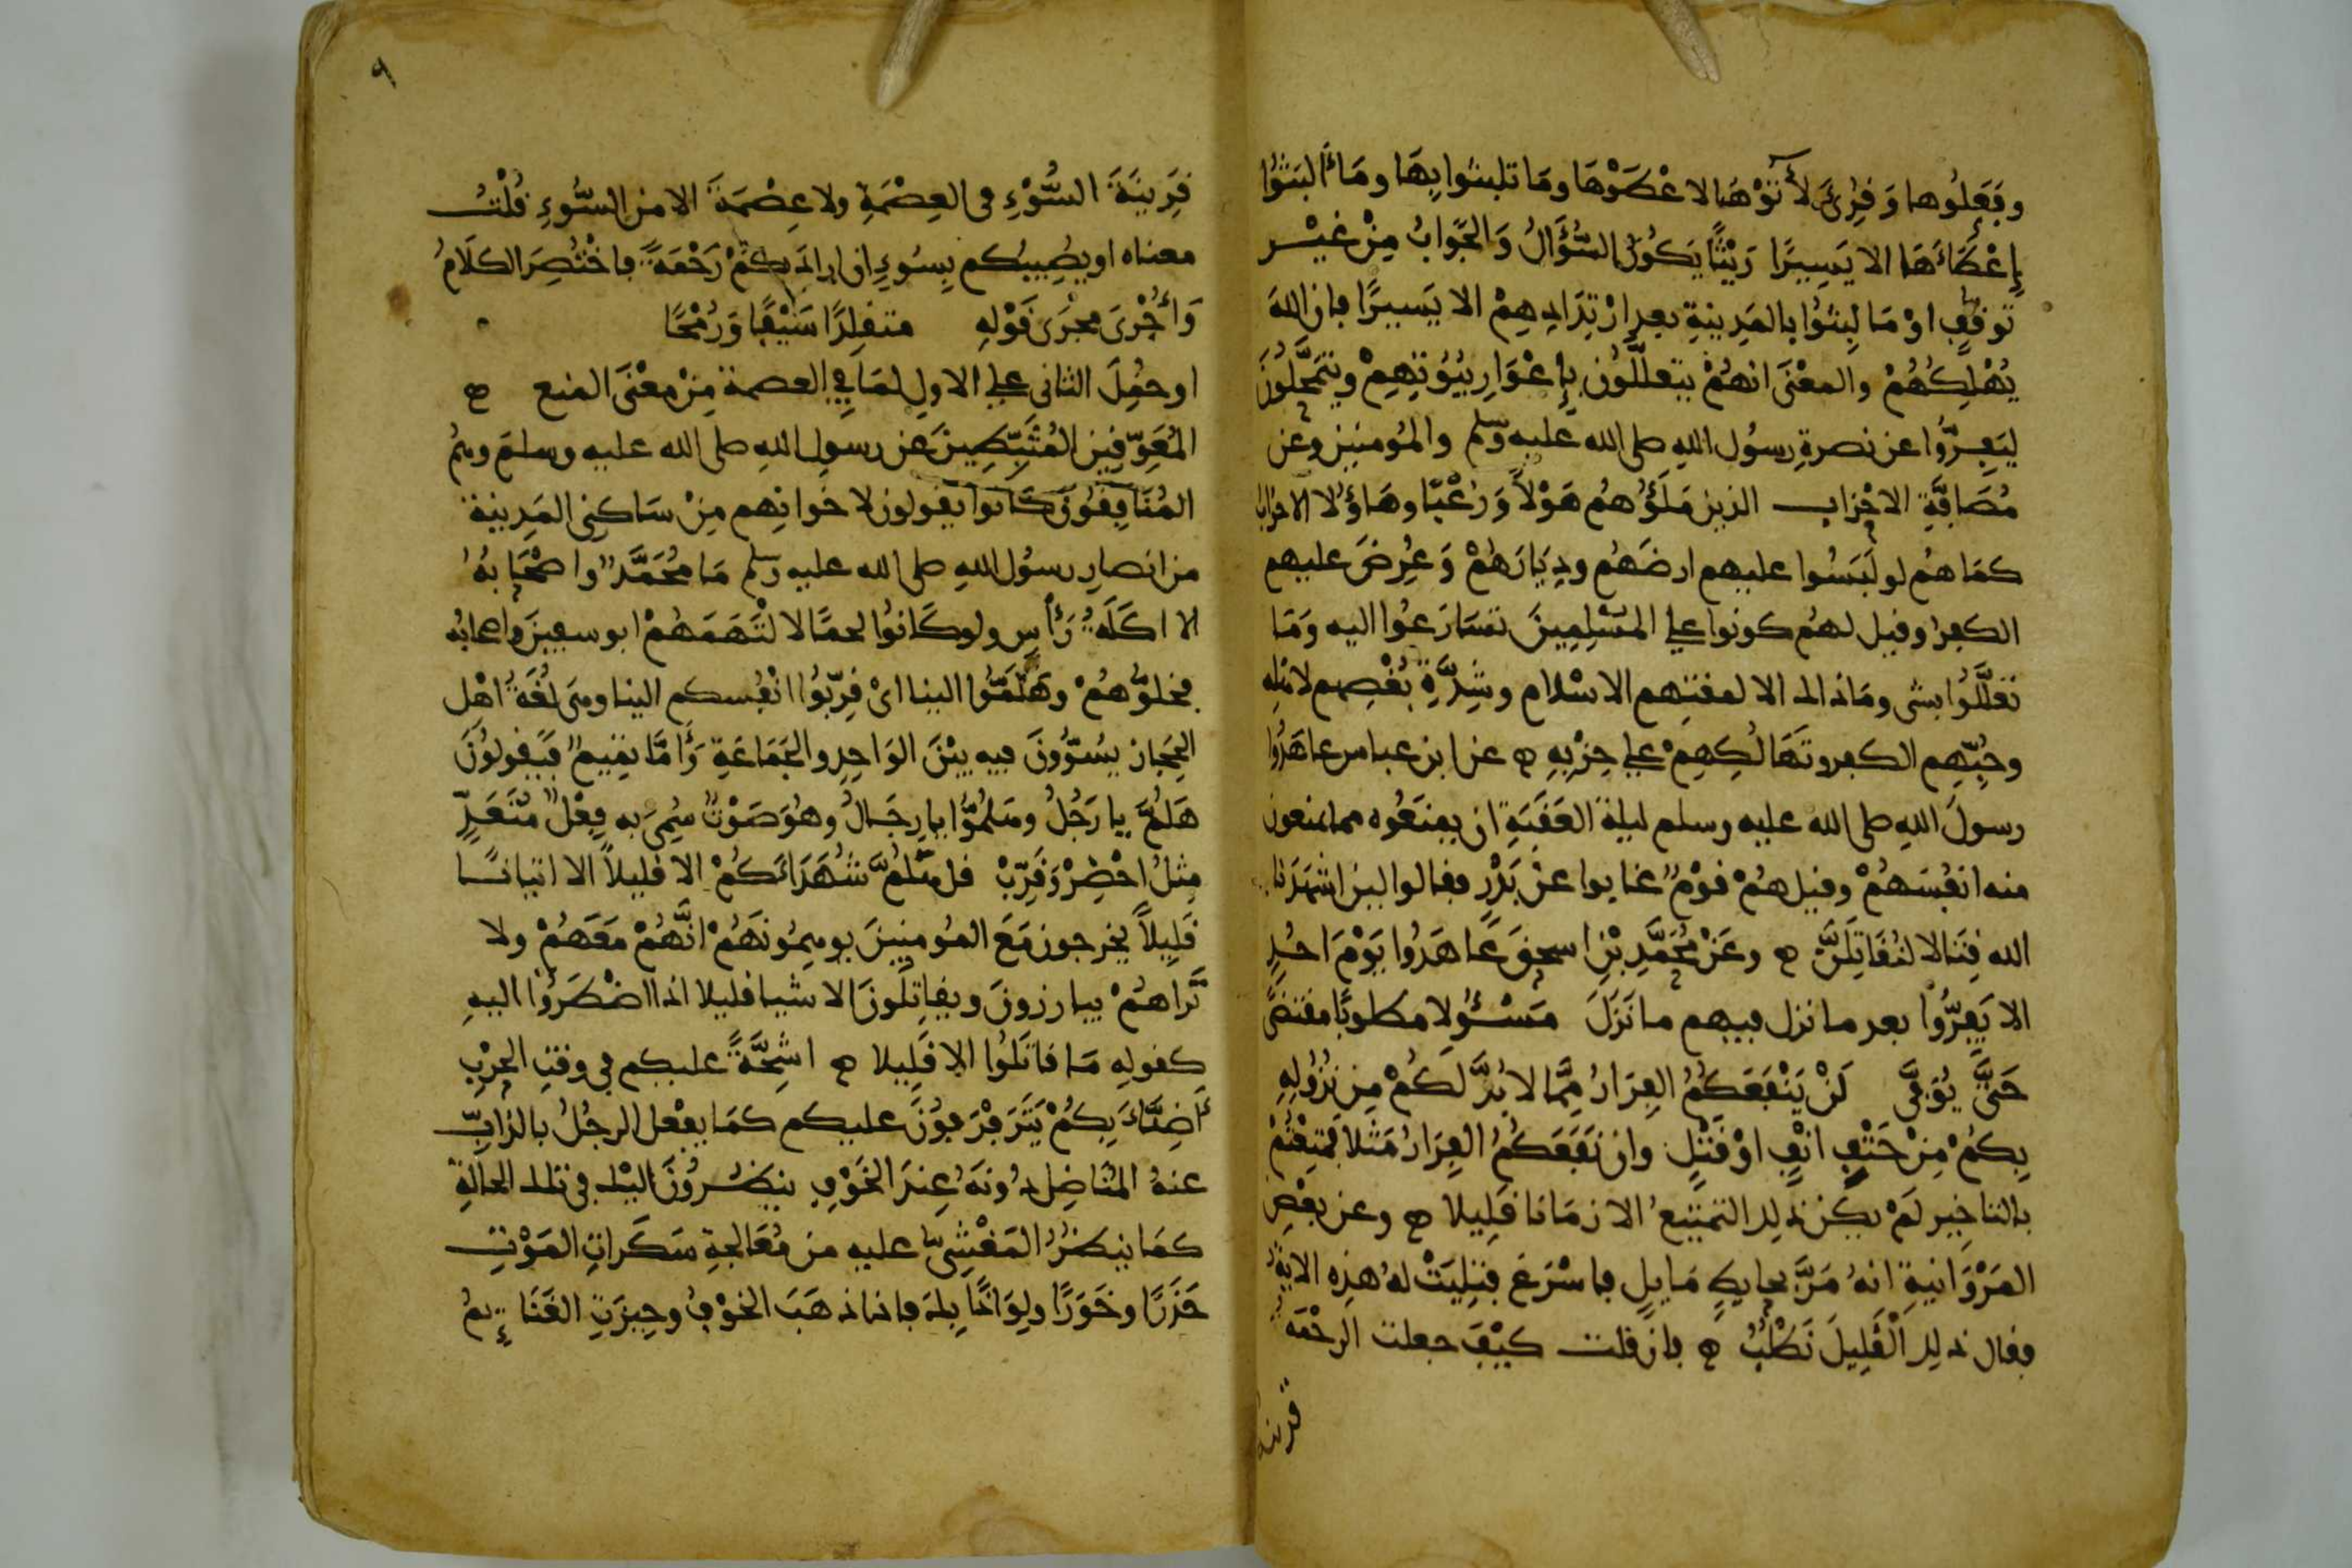 وفَعَلُوها وَقُرِئَ لأَتَوْهَا لاعْطَوْهَا ومَا تلبثوا بِهَا ومَا أَلبَثُوا
إِعْطَاءَهَا الا يَسِيرًا رَيْثَمَا يَكُونُ السُّؤَالُ وَالجَوابُ مِنْ غيْر
توقفٍ اوْ مَا لبِثُوا بالمَدِينةِ بعد ارْتِدَادِهِمْ الا يَسيرًا فان اللهَ
يُهْلِكُهُمْ والمعْنَى انهُمْ يتعلَّلُون بِإعْوَارِ بيُوُتِهِمْ ويتمَحَّلُونَ
ليَفِرُّوا عن نصرةِ رسُول اللهِ صلى الله عليه وسلم والمُومنين وعن
مُصَافَّةِ الاحْزاب الذين مَلَؤُهُمُ هَوْلاً وَرُعْبًا وهَاؤُلا الاحزاب
كمَا هُم لو لَبَسُوا عليهم ارضَهُم ودِيَارَهُمْ وَعُرِضَ عليهم
الكفرُ وقيل لهُم كونوا على المُسْلِمِينَ لَسَارَعُوا اليه ومَا
تعَلَّلُوا بشى ومَا ذالك الا لمقتهم الاسْلام وشِدَّةِ بُغْضِهم لاهْله
وحُبِّهِم الكفر وتَهَالُكِهِمْ على حِزْبِهِ ۞ عن ابن عباس عاهَدُوا
رسولَ اللهِ صلى الله عليه وسلم ليلة العَقَبَةِ ان يمنَعُوه مما يمنعون
منه انفُسَهُمْ وقيل هُمْ قوْمٌ غابوا عنْ بَدْرٍ فقالوا لين اشهَدَنا
الله قِتَالا لنُقَاتِلَنَّ ۞ وعَنْ مُحَمَّدِ بْنِ اسحقَ عَاهَدُوا يَوْمَ احُدٍ
الا يَفِرُّوا بعد ما نزل فيهم ما نَزَلَ مَسْـئُولا مطلوبًا مقتضًى
حَتَّى يُوَفَّى لَنْ يَنْفَعَكُمُ الفِرَارُ مِمَّا لا بُدَّ لَكُمْ مِن نزُولِهِ
بِكُمْ مِنْ حَتْفِ انْفٍ اوْ قَتْلٍ وان نَفَعَكُمُ الفِرَارُ مَثَلا فمُتِعْتُمْ
بالتاخِيرِ لَمْ يكُن ذلِك التمتيعُ الا زمَانا قَلِيلا ۞ وعن بعْضِ
المَرْوَانيةِ انهُ مَرَّ بحايطٍ مَايِلٍ فاسْرَعَ فتلِيَتْ لهُ هذِه الايةُ
فقال ذلِك الْقَلِيلَ نَطْلُبُ ۞ فان قلت كيْفَ جعلت الرحْمَة
قرينة
٩
قَرِينَةَ السُّوْءِ فى العِصْمَةِ ولا عِصْمَةَ الا من السُّوءِ قُلْتُ
معناه او يصُيبكم بِسُوءٍ ان ارادَ بكُمْ رَحْمَةً فاخْتُصِرَ الكلَامُ
وَأُجْرِىَ مجْرَى قَوْلِهِ متقلِدًا سَيْفًا وَرُمْحًا
او حُمِلَ الثانى على الاولِ لمَا فِي العصمة مِنْ معْنَى المنع ۞
المُعَوِّقِينَ المُثَبِّطِينَ عن رسولِ اللهِ صلى الله عليه وسلمَ وهمُ
المُنَافِقُونَ كانوا يقولون لاخوانِهم مِنْ سَاكنِى المَدِينة
من انصارِ رسُول اللهِ صلى الله عليه وسلم مَا مُحَمَّدٌ واصْحَابهُ
الا اكَلَةُ رَأْسٍ ولو كَانُوا لحمًا لالْتَهَمَهُمْ ابو سفينَ واصحابُه
فخلوُّهُمْ وهَلُمُّوا الينا اىْ قرِّبُوا انْفُسكم الينا وهى لُغَةُ اهْل
الحِجَاز يسُوُّونَ فيه بيْنَ الوَاحِدِ والجَمَاعَةِ وَأَمَّا تمِيمٌ فيَقولوُنَ
هَلُمَّ يا رَجُلُ وهَلمُوُّا يا رِجَالُ وهُوَ صَوْتٌ سُمِىَ به فِعْلٌ مُتَعَدٍّ
مِثْلُ احْضِرْ وَقَرِّبْ قل هَلُمَّ شُهَدَاءَكُمْ الا قليلاً الا اتيانـًـا
قَلِيلاً يخرجون مَعَ المُومِنِينَ يوهِمُونَهُمْ انَّهُمْ مَعَهُمْ ولا
تَراهُمْ يبارزونَ ويقاتِلُونَ الا شيا قليلا اذا اضْطَرُّوا اليهِ
كقولِهِ مَا قاتَلُوا الا قَلِيلا ۞ اشِحَّةً عليكم فى وقتِ الحَرْبِ
أَضِنَّاءَ بِكُمْ يَتَرَفْرَفوُنَ عليكم كمَا يفْعل الرجُلُ بالذابِّ
عنهُ المُنَاضِلِ دُونَهُ عِندَ الخَوْفِ ينظُـرُونَ اليْك فى تلك الحالَةِ
كمَا ينظرُ المَغْشِىُّ عليه من مُعَالجةِ سَكَراتِ المَوْتِ
حَذَرًا وخَوَرًا ولِوَاذًا بِكَ فاذا ذهَبَ الخوْفُ وحِيزَتِ الغَنَائِمُ